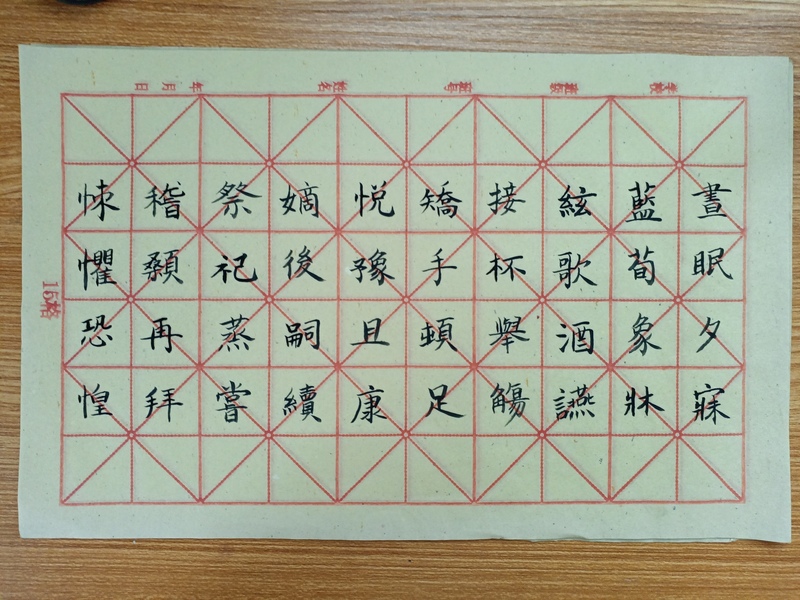 晝眠夕寐
藍荀象牀
絃歌酒讌
接杯舉觴
矯手頓足
悅豫且康
嫡後嗣續
祭祀蒸嘗
稽顙再拜
悚懼恐惶
年 月 日
姓名
16格